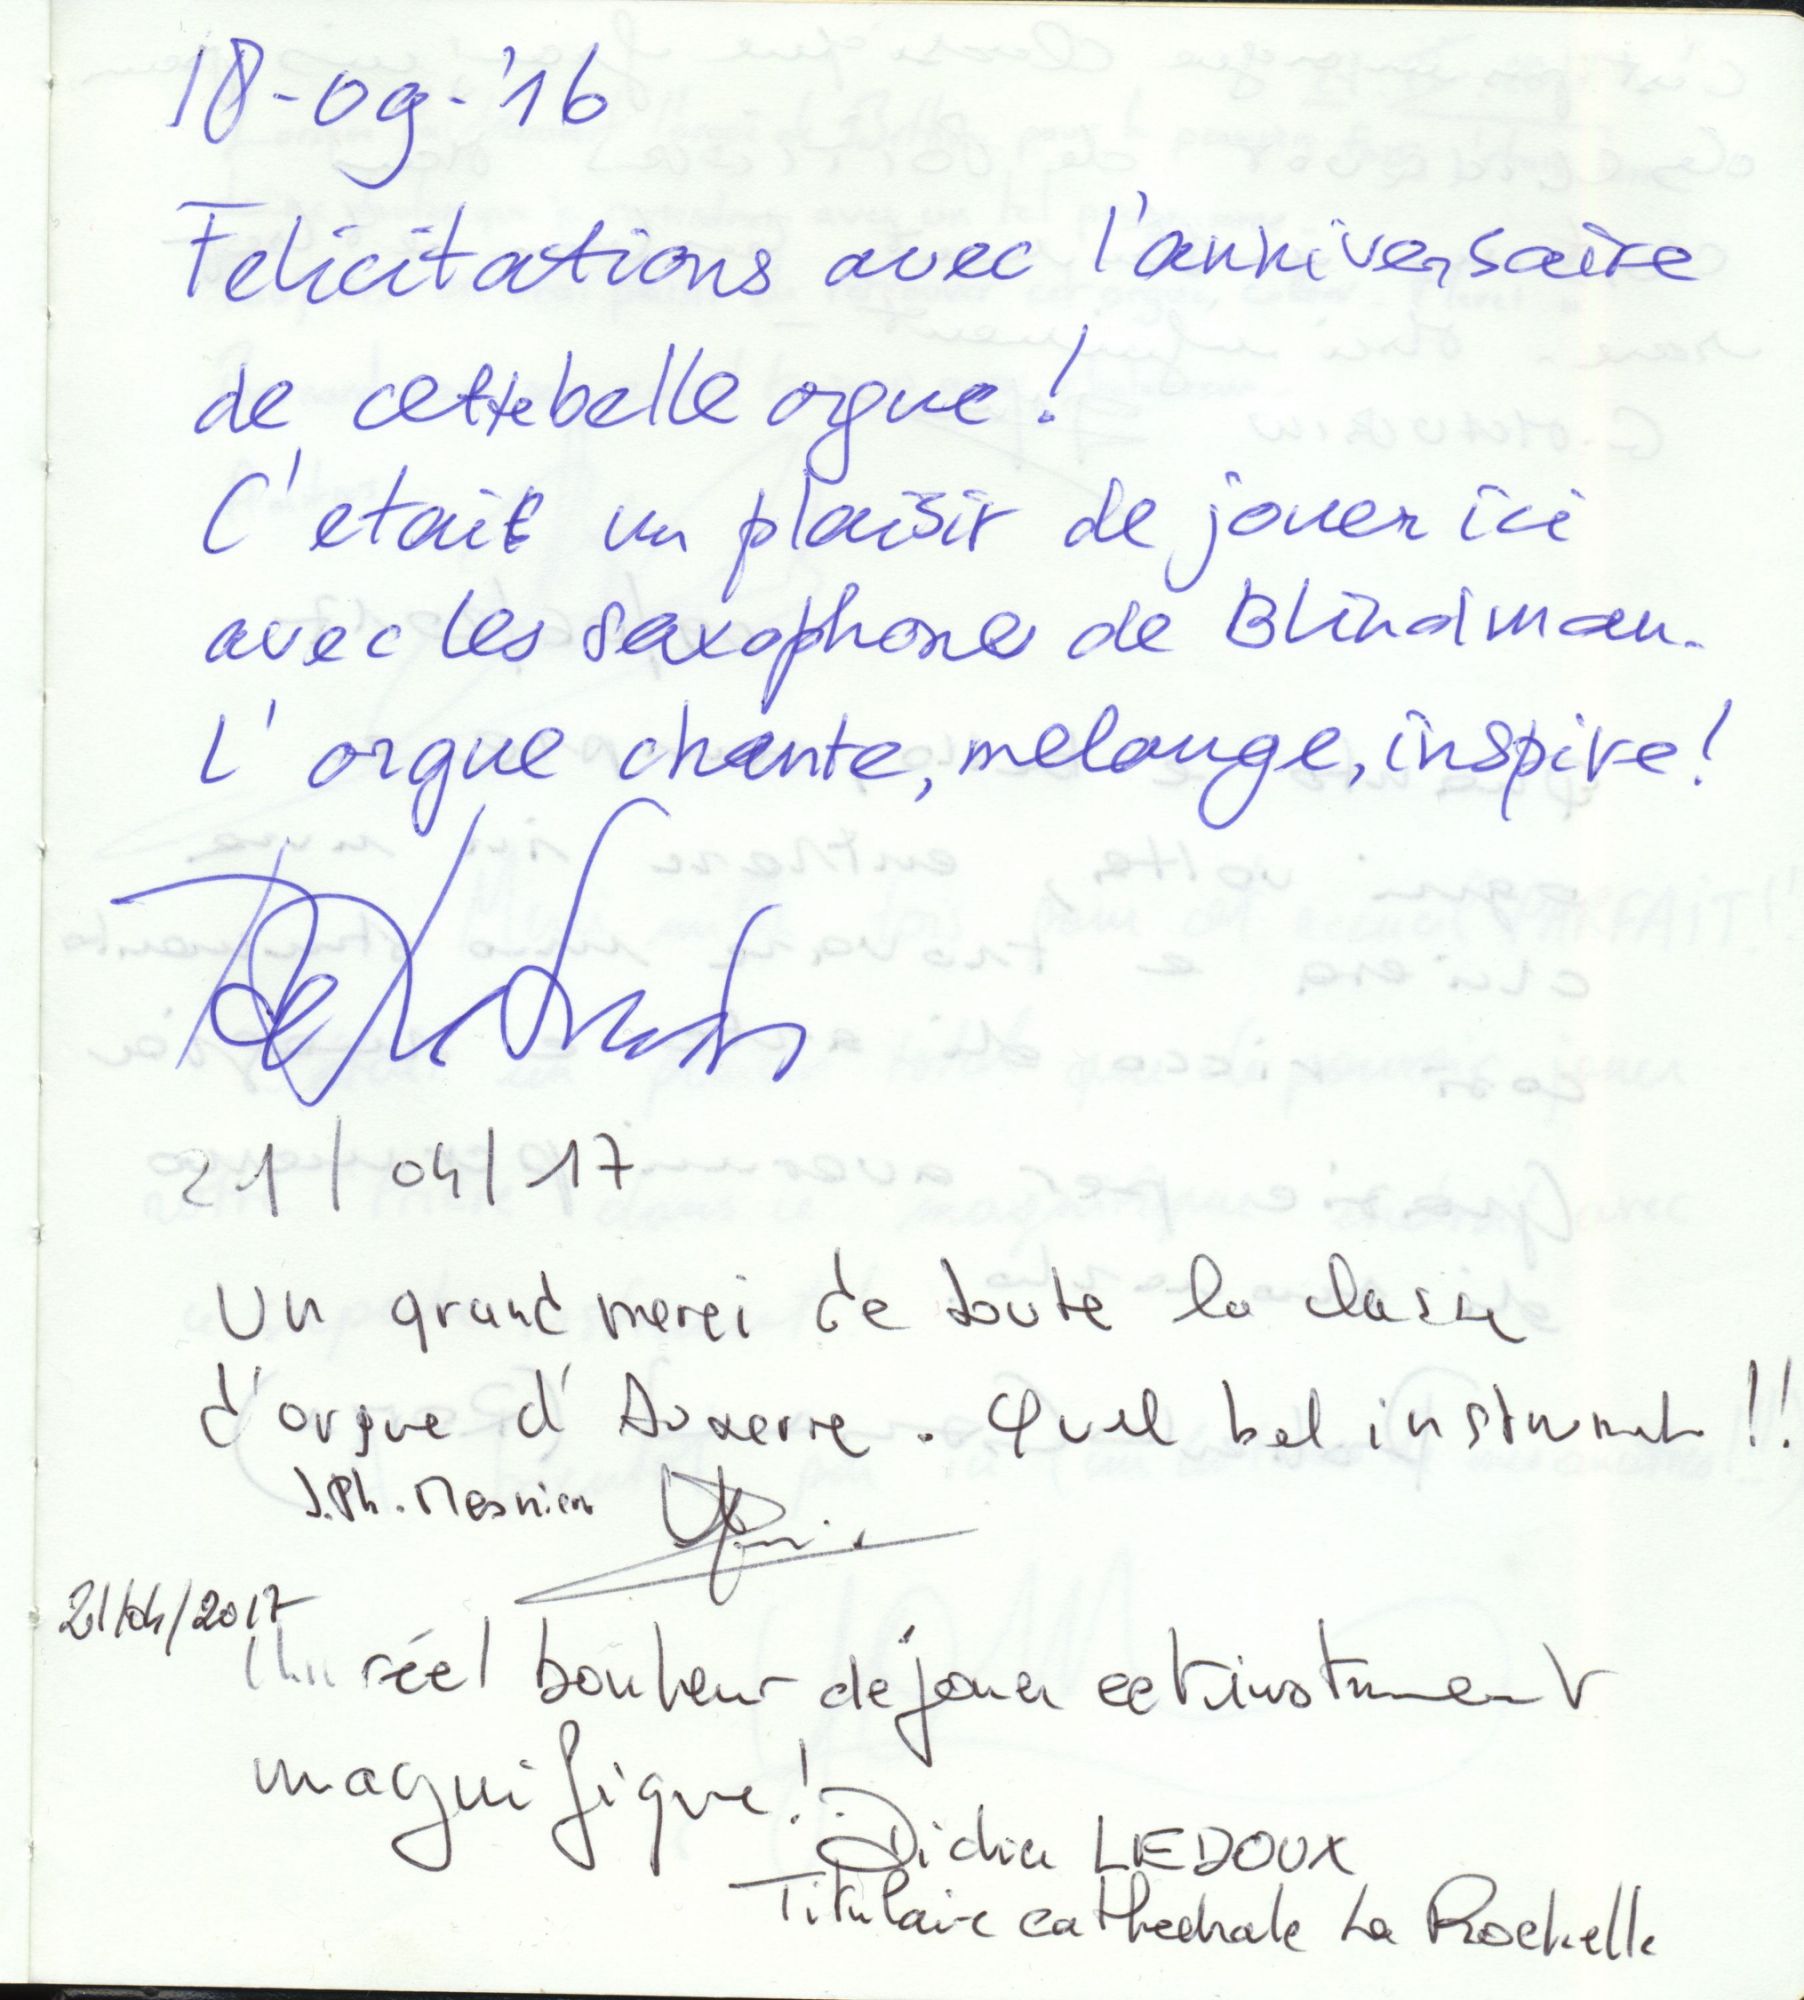 18-09-'16
Felicitations avec l'anniversaire
de cette belle orgue!
C'etait un plaisir de jouer ici
avec les saxophone de Blindman.
L'orgue chante, melange, inspire!
21/04/17
Un grand merci de toute la classe
d'orgue d'Auxerre. Quel bel instrument!!
J.Ph. Mesnier
21/04/2017
Un réel bonheur de jouer cet instrument
magnifique!
Didier LEDOUX
Titulaire cathedrale La Rochelle